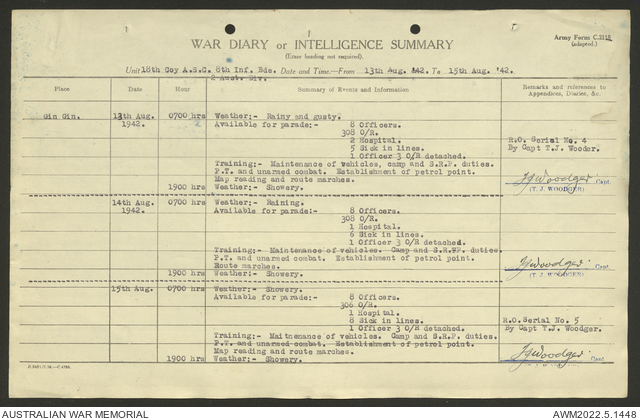 Army Form C.2118
(adapted.)
WAR DIARY or INTELLIGENCE SUMMARY
(Erase heading not required).
Unit 18th Coy A.S.C. 8th Inf. Bde. Date and Time—From 13th Aug. '42. To 15th Aug. '42.
2 Aust. Div.
Place Date Hour Summary of Events and Information Remarks and references to
Appendices, Diaries, &c.
Gin Gin. 13th Aug. 0700 hrs Weather:- Rainy and gusty.
1942. Available for parade:- 8 Officers.
308 O/R.
2 Hospital. R.O. Serial No. 4
5 Sick in lines. By Capt T.J. Wooder.
1 Officer 3 O/R detached.
Training:- Maintenance of vehicles, camp and S.R.P. duties.
P.T. and unarmed combat. Establishment of petrol point.
Map reading and route marches. TJWoodger Capt.
1900 hrs Weather:- Showery. (T.J. WOODGER)
14th Aug. 0700 hrs Weather:- Raining.
1942. Available for parade:- 8 Officers.
308 O/R.
1 Hospital.
6 Sick in lines.
1 Officer 3 O/R detached.
Training:- Maintenance of vehicles. Camp and S.R.P. duties.
P.T. and unarmed combat. Establishment of petrol point.
Route marches. TJWoodger Capt.
1900 hrs Weather:- Showery. (T.J. WOODGER)
15th Aug. 0700 hrs Weather:- Showery.
Available for parade:- 8 Officers.
306 O/R.
1 Hospital.
8 Sick in lines. R.O. Serial No. 5
1 Officer 3 O/R detached. By Capt T.J. Woodger.
Training:- Maitnenance of vehicles. Camp and S.R.P. duties.
P.T. and unarmed combat. Establishment of petrol point.
Map reading and route marches.
1900 hrs Weather:- Showery. TJWoodger Capt.
AUSTRALIAN WAR MEMORIAL AWM2022.5.1448